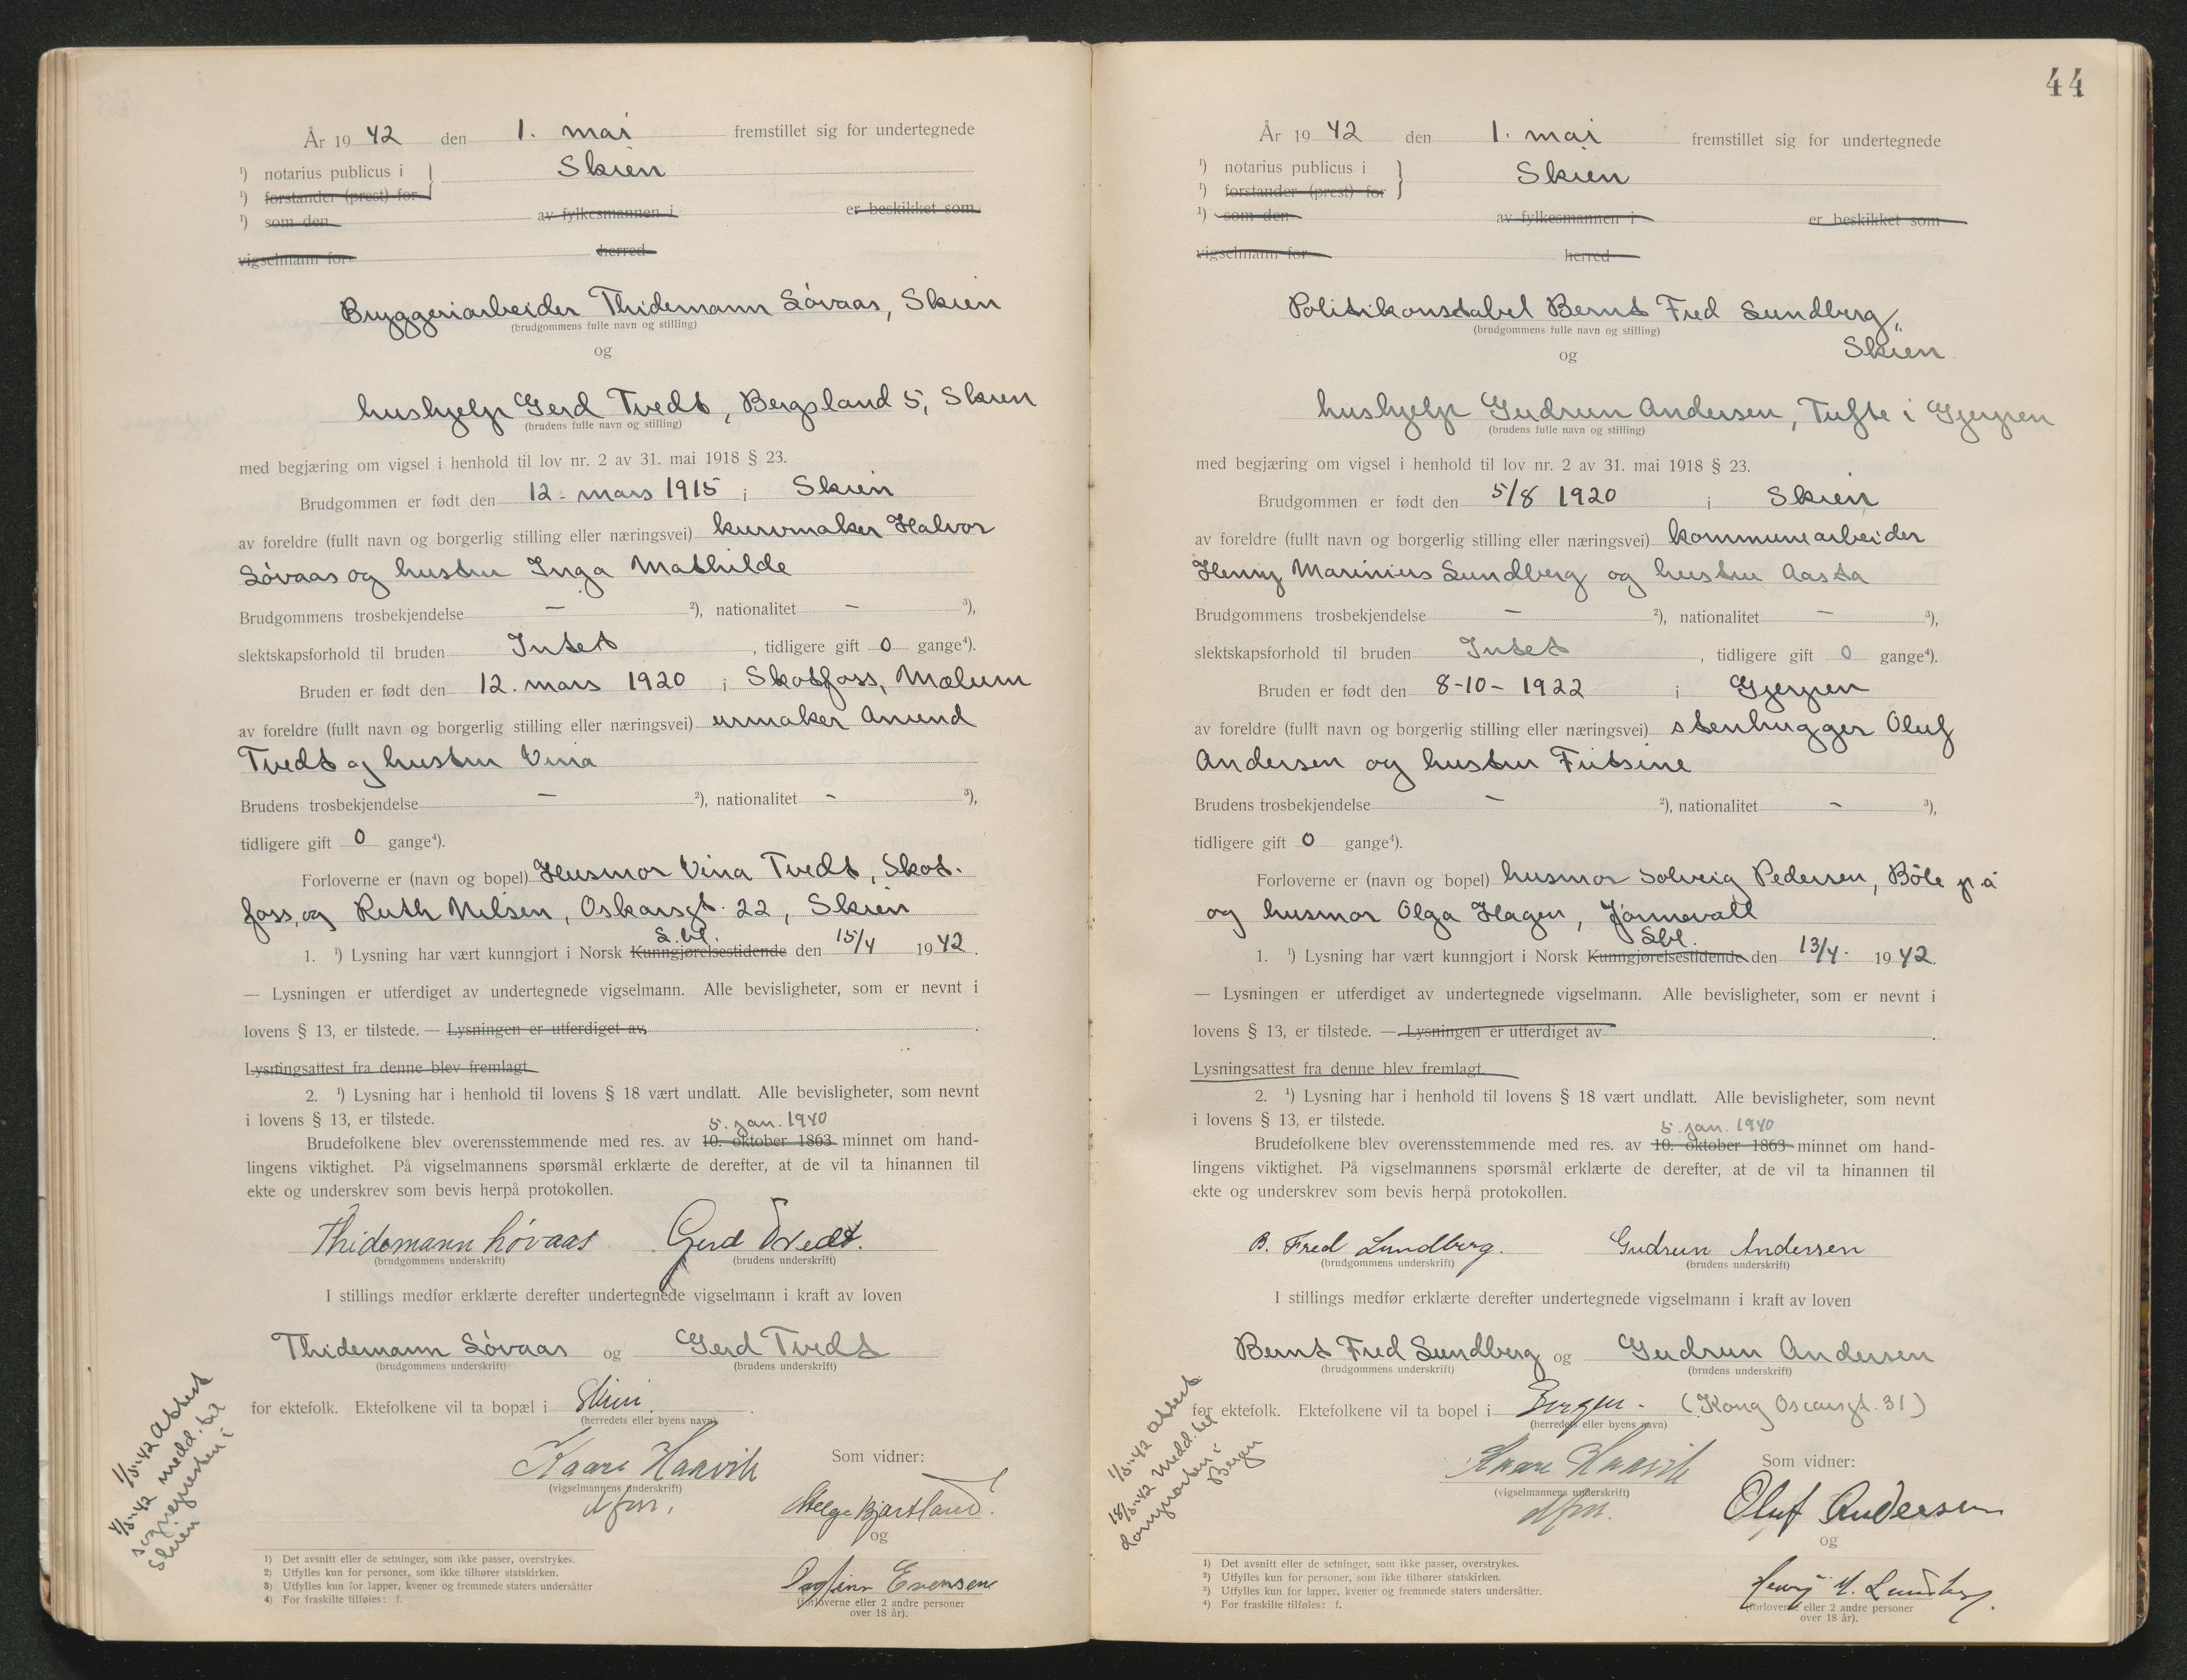 År 1942 den 1. mai fremstillet sig for undertegnede
¹) notarius publicus i } Skien
¹) forstander (prest) for
¹) som den av fylkesmannen i er beskikket som
vigselmann for herred
Bryggeriarbeider Thidemann Løvaas, Skien
(brudgommens fulle navn og stilling)
og
hushjelp Gerd Tvedt, Bergsland 5, Skien
(brudens fulle navn og stilling)
med begjæring om vigsel i henhold til lov nr. 2 av 31. mai 1918 § 23.
Brudgommen er født den 12. mars 1915 i Skien
av foreldre (fullt navn og borgerlig stilling eller næringsvei) kurvmaker Halvor
Løvaas og hustru Inga Mathilde
Brudgommens trosbekjendelse — ²), nationalitet — ³),
slektskapsforhold til bruden Intet , tidligere gift 0 gange⁴).
Bruden er født den 12. mars 1920 i Skotfoss, Mælum
av foreldre (fullt navn og borgerlig stilling eller næringsvei) urmaker Anund
Tvedt og hustru Vina
Brudens trosbekjendelse — ²), nationalitet - ³),
tidligere gift 0 gange⁴).
Forloverne er (navn og bopel) Husmor Vina Tvedt, Skot-
foss, og Ruth Nilsen, Oskarsgt. 22, Skien
S.bl.
1. ¹) Lysning har vært kunngjort i Norsk Kunngjørelsestidende den 15/4 1942.
— Lysningen er utferdiget av undertegnede vigselmann. Alle bevisligheter, som er nevnt i
lovens § 13, er tilstede. — Lysningen er utferdiget av .
Lysningsattest fra denne blev fremlagt
2. ¹) Lysning har i henhold til lovens § 18 vært undlatt. Alle bevisligheter, som nevnt
i lovens § 13, er tilstede.
5. jan. 1940
Brudefolkene blev overensstemmende med res. av 10. oktober 1863 minnet om hand-
lingens viktighet. På vigselmannens spørsmål erklærte de derefter, at de vil ta hinannen til
ekte og underskrev som bevis herpå protokollen.
Thidemann Løvaas Gerd Tvedt.
(brudgommens underskrift) (brudens underskrift)
I stillings medfør erklærte derefter undertegnede vigselmann i kraft av loven
Thidemann Løvaas og Gerd Tvedt
(brudgommens underskrift) (brudens underskrift)
for ektefolk. Ektefolkene vil ta bopæl i Skien .
(herredets eller byens navn)
Kaare Haavik Som vidner:
(vigselmannens underskrift)
dfm. Helge Bjartland.
og
Dagfinn Evensen
(forloverne eller 2 andre personer
over 18 år).
1/5-42 Attest
4/5-42 medd. til
sognepresten i
Skien
1) Det avsnitt eller de setninger, som ikke passer, overstrykes.
2) Utfylles kun for personer, som ikke tilhører statskirken.
3) Utfylles kun for lapper, kvener og fremmede staters undersåtter
4) For fraskilte tilføies: f.
44
År 1942 den 1. mai fremstillet sig for undertegnede
¹) notarius publicus i } Skien
¹) forstander (prest) for
¹) som den av fylkesmannen i er beskikket som
vigselmann for herred
Politikonstabel Bernt Fred Lundberg,
(brudgommens fulle navn og stilling)
og Skien
hushjelp Gudrun Andersen, Tufte i Gjerpen
(brudens fulle navn og stilling)
med begjæring om vigsel i henhold til lov nr. 2 av 31. mai 1918 § 23.
Brudgommen er født den 5/8 1920 i Skien
av foreldre (fullt navn og borgerlig stilling eller næringsvei) kommunearbeider
Henry Marinius Lundberg og hustru Aasta
Brudgommens trosbekjendelse — ²), nationalitet — ³),
slektskapsforhold til bruden Intet , tidligere gift 0 gange⁴).
Bruden er født den 8-10-1922 i Gjerpen
av foreldre (fullt navn og borgerlig stilling eller næringsvei) stenhugger Oluf
Andersen og hustru Fritsine
Brudens trosbekjendelse — ²), nationalitet - ³),
tidligere gift 0 gange⁴).
Forloverne er (navn og bopel) husmor Solveig Pedersen, Bøle på
og husmor Olga Hagen, Jønnevall
Sbl.
1. ¹) Lysning har vært kunngjort i Norsk Kunngjørelsestidende den 13/4. 1942.
— Lysningen er utferdiget av undertegnede vigselmann. Alle bevisligheter, som er nevnt i
lovens § 13, er tilstede. — Lysningen er utferdiget av .
Lysningsattest fra denne blev fremlagt
2. ¹) Lysning har i henhold til lovens § 18 vært undlatt. Alle bevisligheter, som nevnt
i lovens § 13, er tilstede.
5. jan. 1940
Brudefolkene blev overensstemmende med res. av 10. oktober 1863 minnet om hand-
lingens viktighet. På vigselmannens spørsmål erklærte de derefter, at de vil ta hinannen til
ekte og underskrev som bevis herpå protokollen.
B. Fred Lundberg. Gudrun Andersen
(brudgommens underskrift) (brudens underskrift)
I stillings medfør erklærte derefter undertegnede vigselmann i kraft av loven
Bernt Fred Lundberg og Gudrun Andersen
(brudgommens underskrift) (brudens underskrift)
for ektefolk. Ektefolkene vil ta bopel i Bergen. (Kong Oscarsgt. 31)
(herredets eller byens navn)
Kaare Haavik Som vidner:
(vigselmannens underskrift)
dfm. Oluf Andersen
og
Henry M. Lundberg.
(forloverne eller 2 andre personer
over 18 år).
1/5-42 attest
18/5-42 Medd. til
domprosten i
Bergen
¹) Det avsnitt eller de setninger, som ikke passer, overstrykes.
²) Utfylles kun for personer, som ikke tilhører statskirken.
³) Utfylles kun for lapper, kvener og fremmede staters undersåtter.
⁴) For fraskilte tilføies: f.